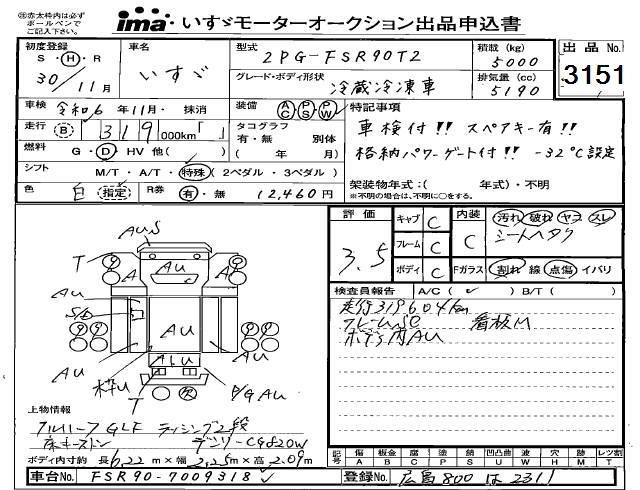 ㊟赤太枠内は必ず
ボールペンで
ご記入下さい。
ima いすゞモーターオークション出品申込書
初度登録
S・H・R
30/11月
車名
いすゞ
型式
2PG-FSR90T2
積載 (kg)
5000
出品No.
3151
グレード・ボディ形状
冷蔵冷凍車
排気量 (cc)
5190
車検
令和6年11月・抹消
装備
AC PS PW
特記事項
走行 B 319 000km「 」
タコグラフ
有・無 別体
( 年 月)
車検付!! スペアキー有!!
燃料 G・D・HV 他( )
格納パワーゲート付!! -32℃設定
シフト M/T・A/T・特殊(2ペダル・3ペダル)
架装物年式:( 年式)・不明
※不明の場合は、不明に○をする。
色 白 指定 R券 有・無 12,460円
評価
3.5
キャブ C
フレーム C
ボディ C
内装 C
汚れ 破れ ヤコ スレ
シートヘタク
Fガラス 割れ 線 点傷 イバリ
検査員報告 A/C( ✓ ) B/T( )
走行319604km
フレームSC 看板M
ボデ内AU
AUS
T
A
A
AU
AU
Sル
AU
AU
AU
AU
枠U
T
欠
P/G AU
上物情報
アルハーフ GLF ラッシング2段
床キーストン デンソーCG820W
ボディ内寸約 長6.22m×幅2.25m×高2.09m
記号 傷 板金 腐 塗 錆 凹凸曲 波 穴 跡 レツ割
A B C P S U W H M T
車台No. FSR90-7009318 ✓
登録No. 広島 800 は 2311